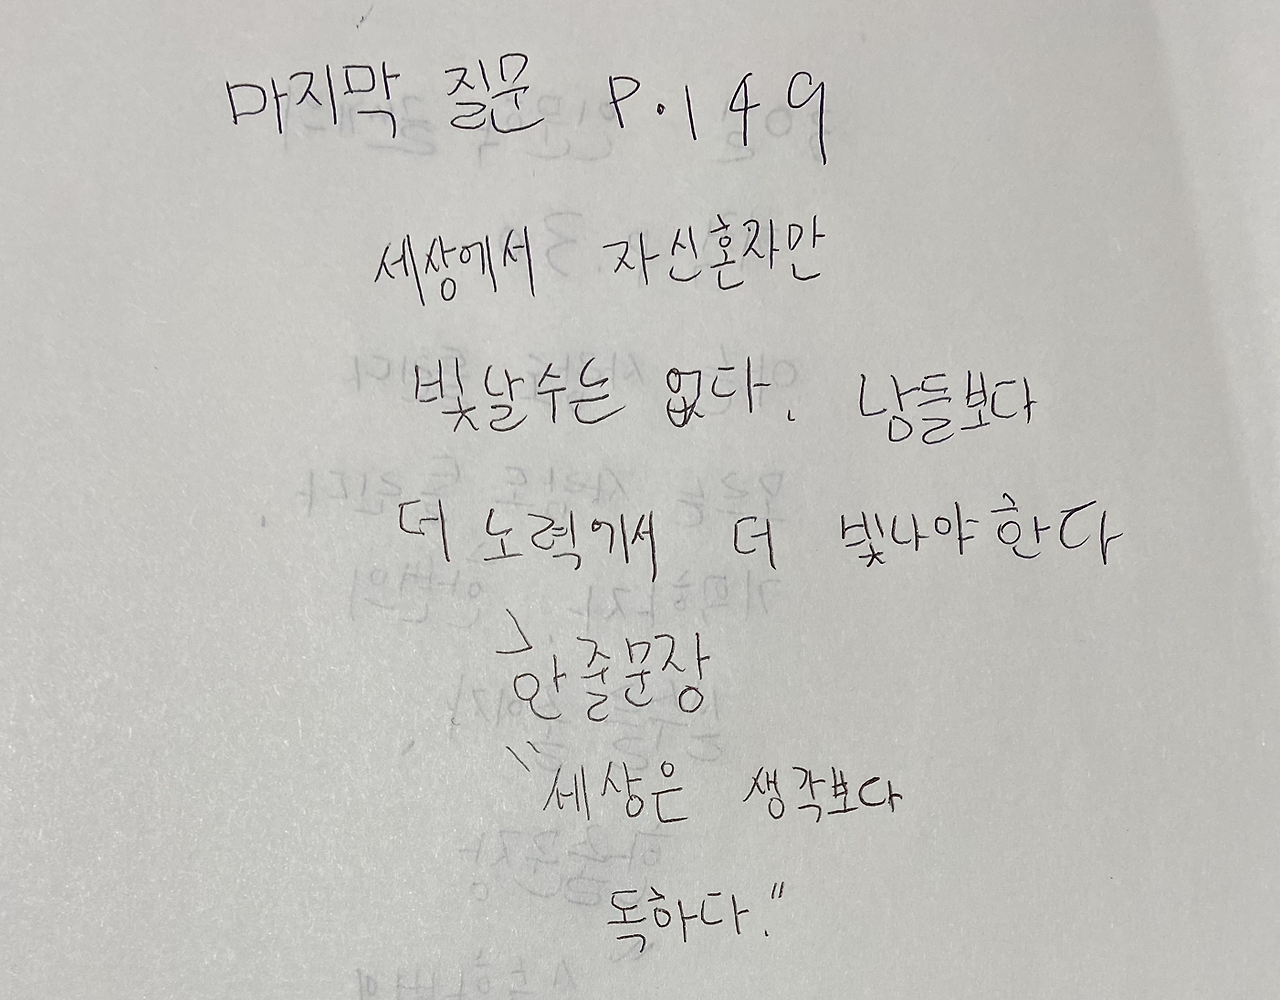 마지막 질문 P.149
세상에서 자신혼자만
빛날수는 없다. 남들보다
더 노력에서 더 빛나야한다
한줄문장
"세상은 생각보다
독하다."